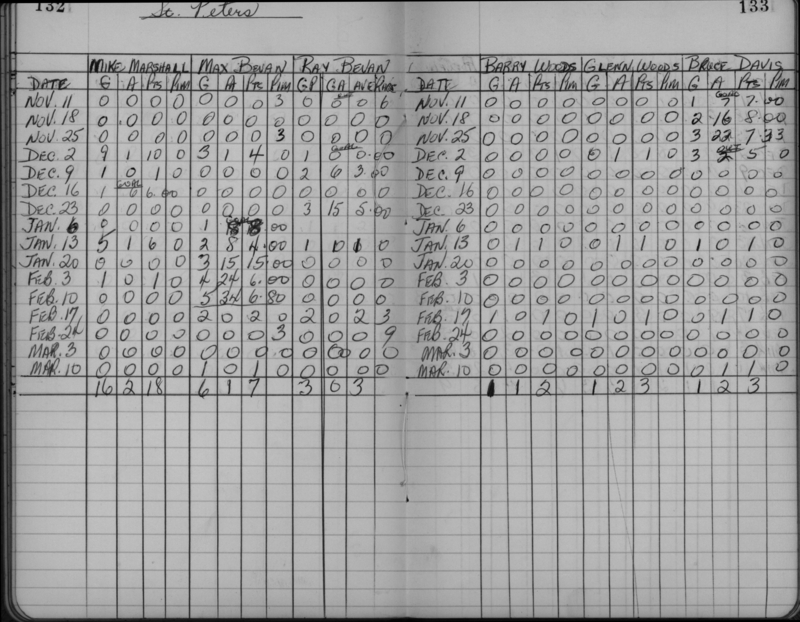 132
St. Peters
133
MIKE MARSHALL MAX BEVAN RAY BEVAN
DATE G A Pts Pim G A Pts Pim GP GA AVE
NOV. 11 0 0 0 0 0 0 0 3 0 0 0 6
NOV. 18 0 0 0 0 0 0 0 0 0 0 0 0
NOV. 25 0 0 0 0 0 0 0 3 0 0 0 0
DEC. 2 9 1 10 0 3 1 4 0 1 0 0.00
DEC. 9 1 0 1 0 0 0 0 0 2 6 3.00
DEC. 16 1 GOAL 6 6.00 0 0 0 0 0 0 0 0
DEC. 23 0 0 0 0 0 0 0 0 3 15 5.00
JAN. 6 0 0 0 0 1 8 8.00
JAN. 13 5 1 6 0 2 8 4.00 1 0 1 0
JAN. 20 0 0 0 0 3 15 15.00 0 0 0 0
FEB. 3 1 0 1 0 4 24 6.00 0 0 0 0
FEB. 10 0 0 0 0 5 34 6.80 0 0 0 0
FEB. 17 0 0 0 0 2 0 2 0 2 0 2 3
FEB. 24 0 0 0 0 0 0 0 3 0 0 0 9
MAR. 3 0 0 0 0 0 0 0 0 0 0 0 0
MAR. 10 0 0 0 0 1 0 1 0 0 0 0 0
16 2 18 6 1 7 3 0 3
BARRY WOODS GLENN WOODS BRUCE DAVIS
DATE G A Pts Pim G A Pts Pim G A Pts Pim
NOV. 11 0 0 0 0 0 0 0 0 1 GOAL 7 7.00
NOV. 18 0 0 0 0 0 0 0 0 2 16 8.00
NOV. 25 0 0 0 0 0 0 0 0 3 22 7.33
DEC. 2 0 0 0 0 0 1 1 0 3 2 5 0
DEC. 9 0 0 0 0 0 0 0 0 0 0 0 0
DEC. 16 0 0 0 0 0 0 0 0 0 0 0 0
DEC. 23 0 0 0 0 0 0 0 0 0 0 0 0
JAN. 6 0 0 0 0 0 0 0 0 0 0 0 0
JAN. 13 0 1 1 0 0 1 1 0 1 0 1 0
JAN. 20 0 0 0 0 0 0 0 0 0 0 0 0
FEB. 3 0 0 0 0 0 0 0 0 0 0 0 0
FEB. 10 0 0 0 0 0 0 0 0 0 0 0 0
FEB. 17 1 0 1 0 1 0 1 0 0 1 1 0
FEB. 24 0 0 0 0 0 0 0 0 0 0 0 0
MAR. 3 0 0 0 0 0 0 0 0 0 0 0 0
MAR. 10 0 0 0 0 0 0 0 0 0 1 1 0
1 1 2 1 2 3 1 2 3